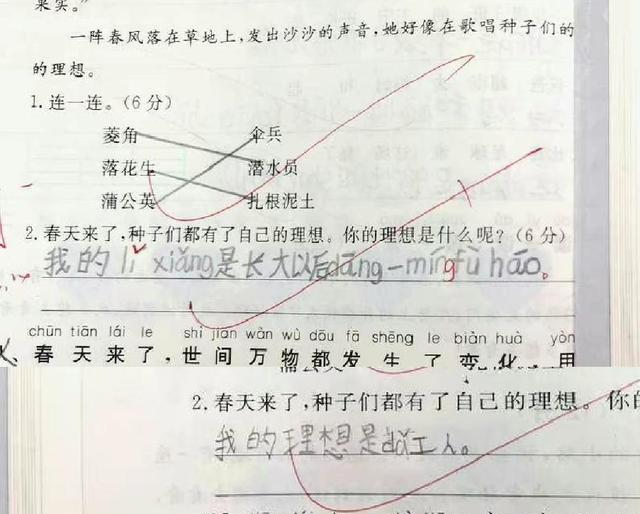 果实。”
一阵春风落在草地上，发出沙沙的声音，她好像在歌唱种子们的
的理想。
1.连一连。（6分）
菱角 伞兵
落花生 潜水员
蒲公英 扎根泥土
2.春天来了，种子们都有了自己的理想。你的理想是什么呢？（6分）
我的lǐ xiǎng是长大以后dāng一míng fù háo。
chūn tiān lái le shì jiān wàn wù dōu fā shēng le biàn huà yòn
春天来了，世间万物都发生了变化，用
2.春天来了，种子们都有了自己的理想。你的
我的理想是 工人。